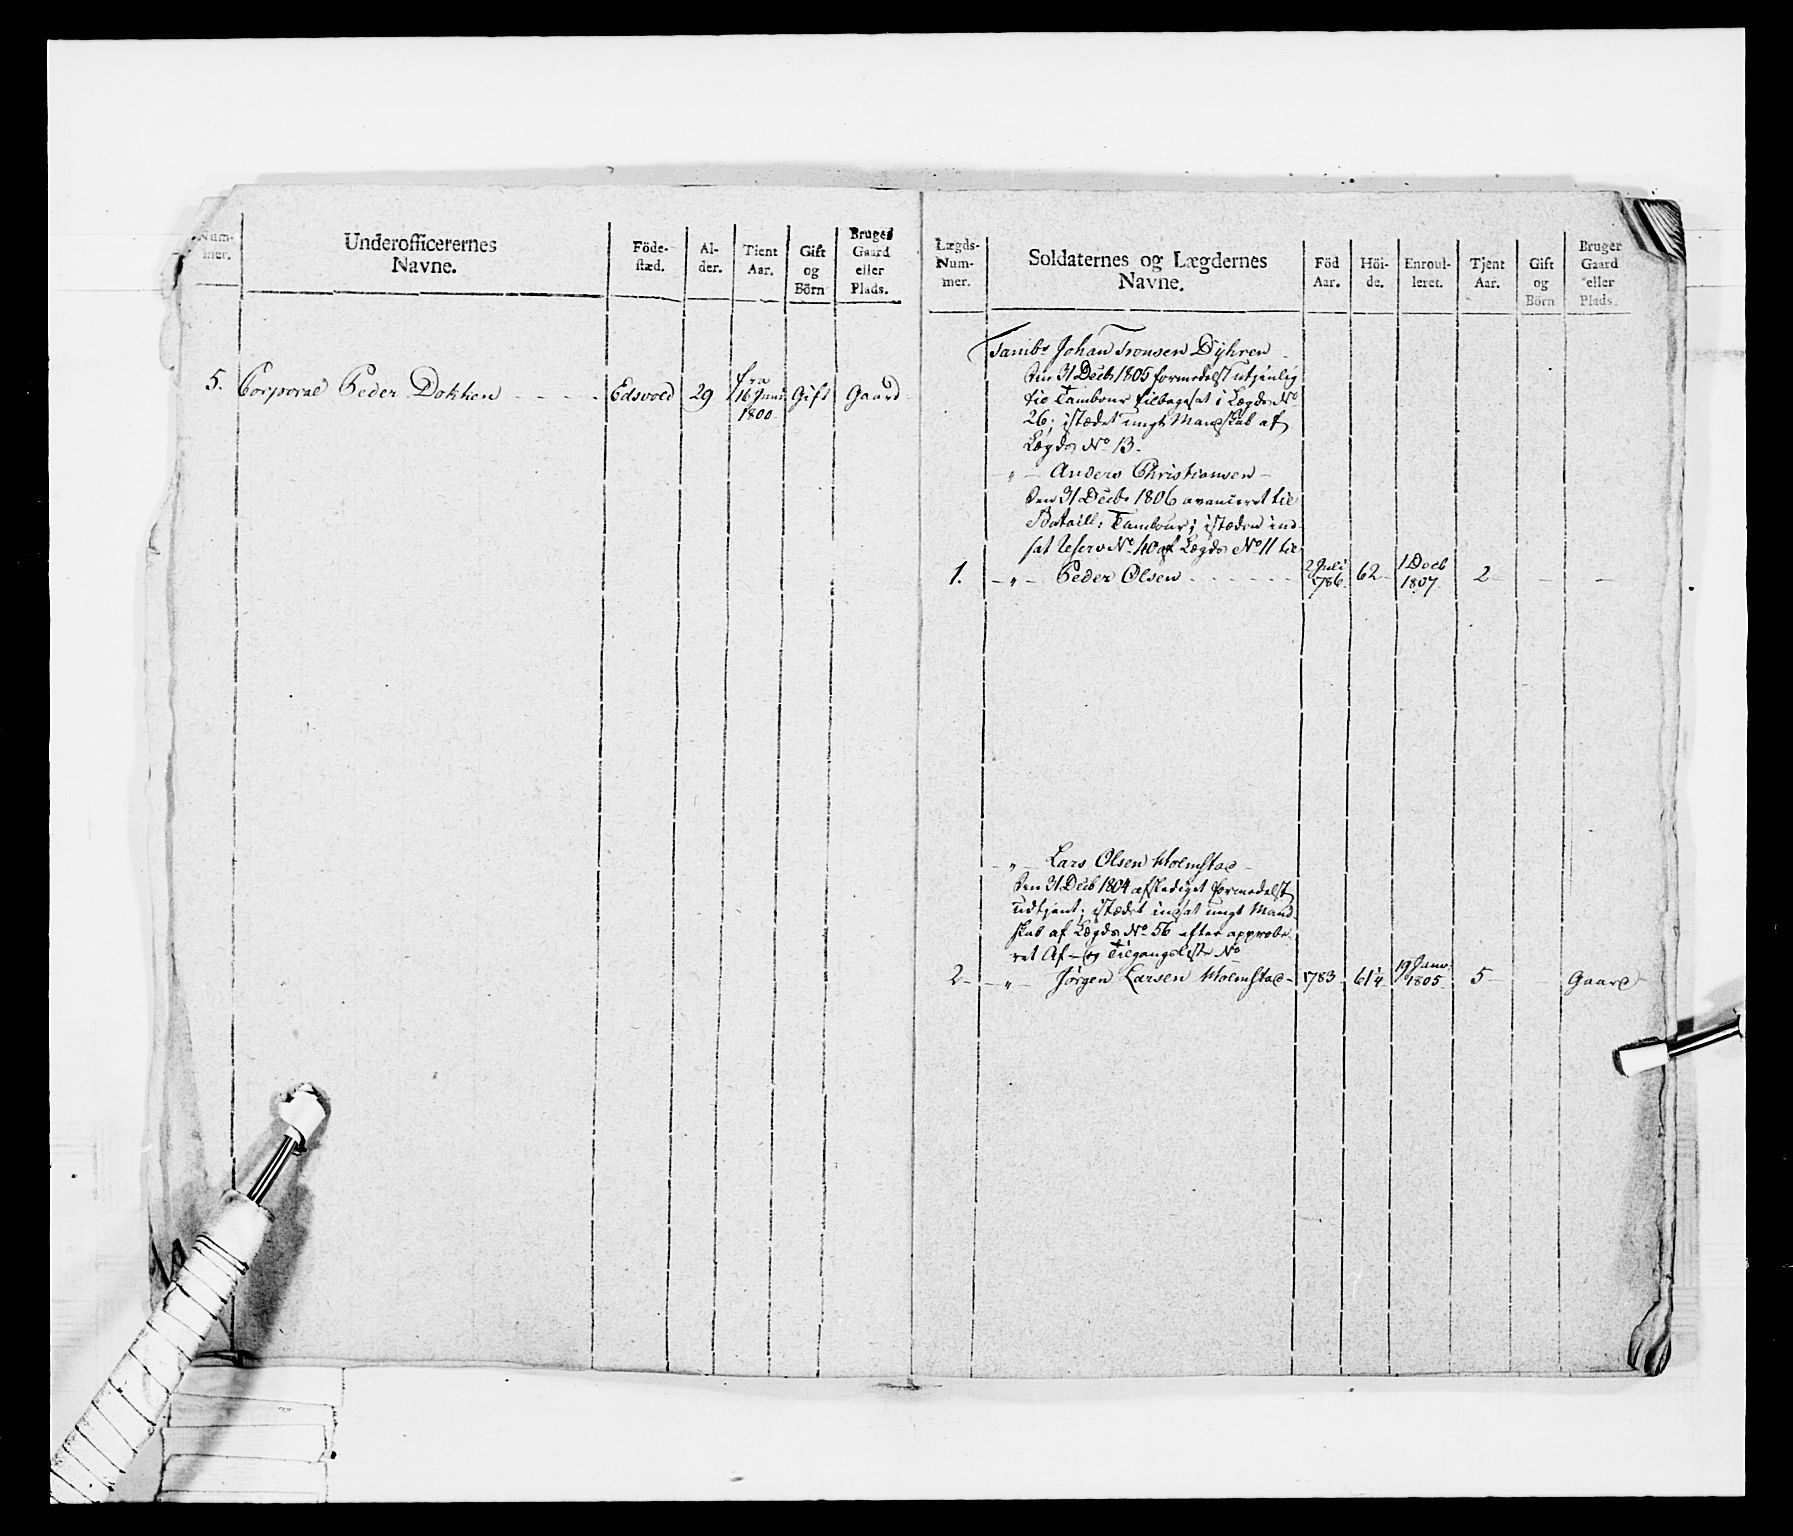 Num-
mer.
Underofficerernes
Navne.
Föde-
stæd.
Al-
der.
Tient
Aar.
Gift
og
Börn
Bruger
Gaard
eller
Plads.
5. Corporal Peder Dokken - - - - Edsvold 29 fra 16 Juni 1800 Gift Gaard
Lægds-
Num-
mer.
Soldaternes og Lægdernes
Navne.
Föd
Aar.
Höi-
de.
Enroul-
leret.
Tjent
Aar.
Gift
og
Börn
Bruger
Gaard
eller
Plads.
Tambr Johan Tronsen Dyhren
den 31 Decb 1805 formedelst utjenlig
til Tambour tilbagesat i Lægds No
26; istædet ungt Mandskab af
Lægds No 13.
- " - Anders Christiansen -
den 31 Decb 1806 avanceret til
Bataill: Tambour; istæden ind-
sat Reserv No 40 af Lægds No 11 til
1. - " - Peder Olsen - - - - - 2 Juli 1786 62 - 1 Decb 1807 2 - - -
- " - Lars Olsen Holmstad -
den 31 Decb 1804 afskediget formedelst
udtjent; istædet indsat ungt Mand-
skab af Lægds No 56 efter approbe-
ret Af- og Tilgangsliste No
2 - - " - Jørgen Larsen Holmstad - 1783 61¼ 19 Janv. 1805 5 - - Gaard